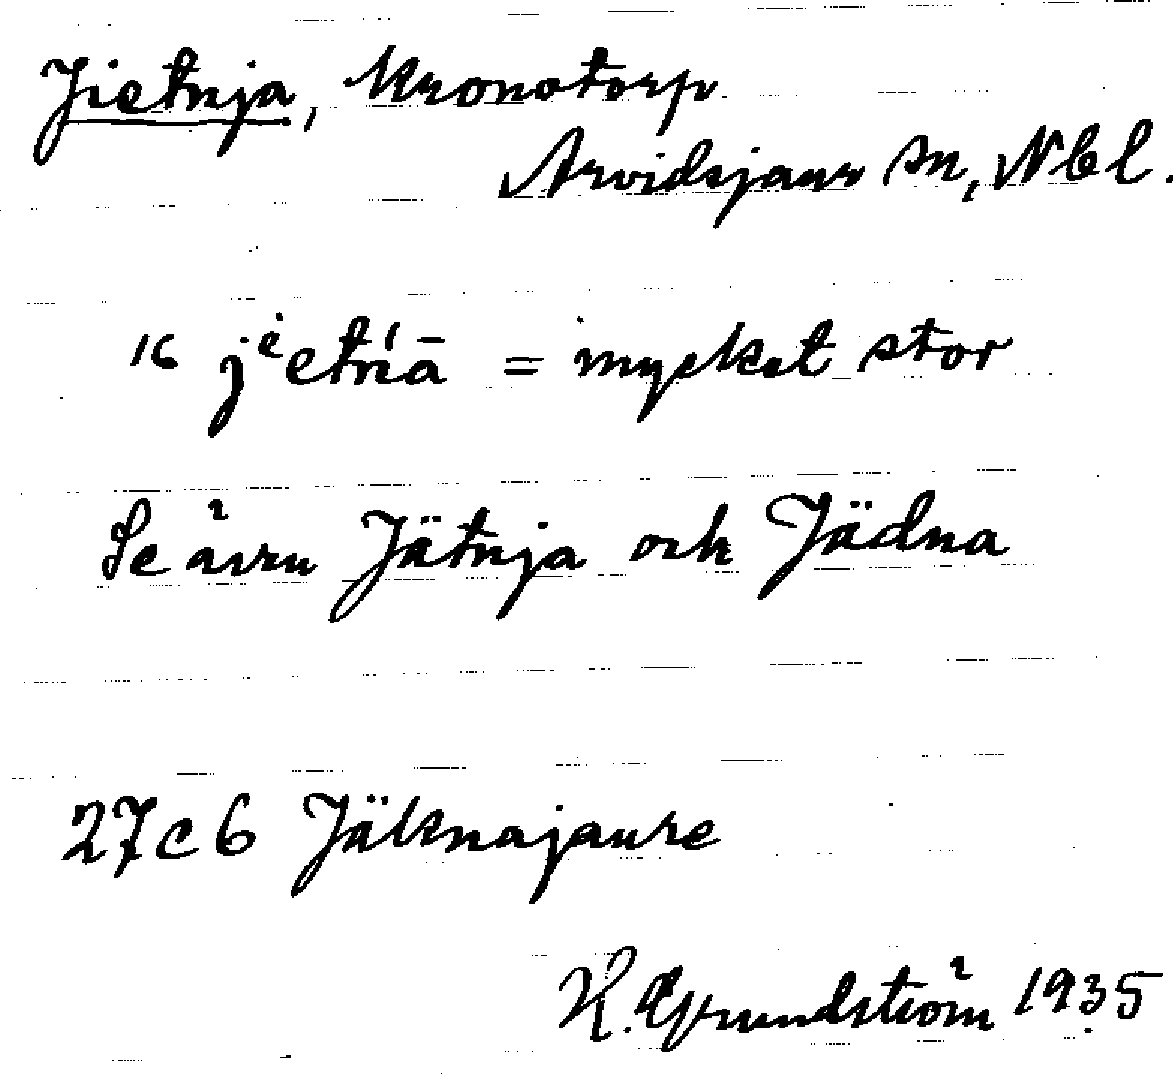 Jietnja, Kronotorp
Arvidsjaur sn, Nbl.
16 jᵉetńā = mycket stor
Se även Jätnja och Jädna
27c6 Jäknajaure
H. Grundström 1935